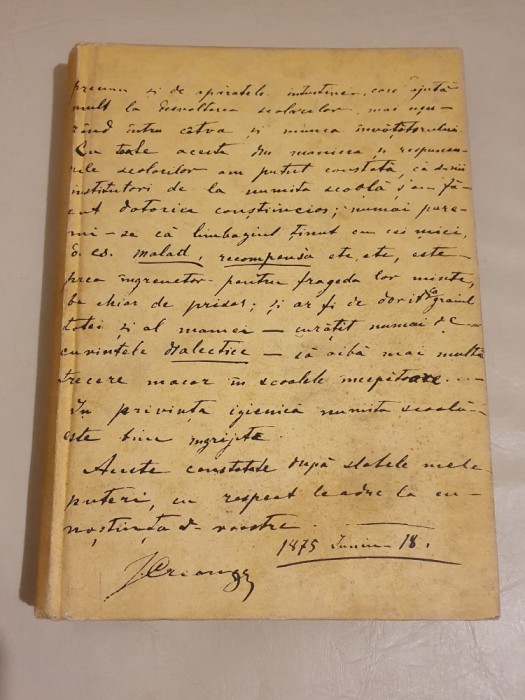 precum și de aparatele intuitive, care ajută
mult la desvoltarea scolarilor, mai ușu-
rând întru câtva și munca învĕțătorului.
Cu toate aceste din maniera și respunsu-
rile scolarilor am putut constata, că d-nii
institutori de la numita scoală ș'au fă-
cut datoria conștiincios; numai pare-
mi-se că limbagiul ținut cu cei mici,
d. es. malad, recompensa etc, etc, este
prea îngreuetor pentru frageda lor minte,
ba chiar de prisos; și ar fi de dorit ca graiul
tatei și al mamei — curățit numai de
cuvintele dialectice — să aibă mai multă
trecere macar în scoalele începĕtoare. —
În privința igienică numita scoală
este bine îngrijită.
Aceste constatate după slabele mele
puteri, cu respect le aduc la cu-
noștiința d-voastre.
1875 Iuniu 18.
I. Creangă